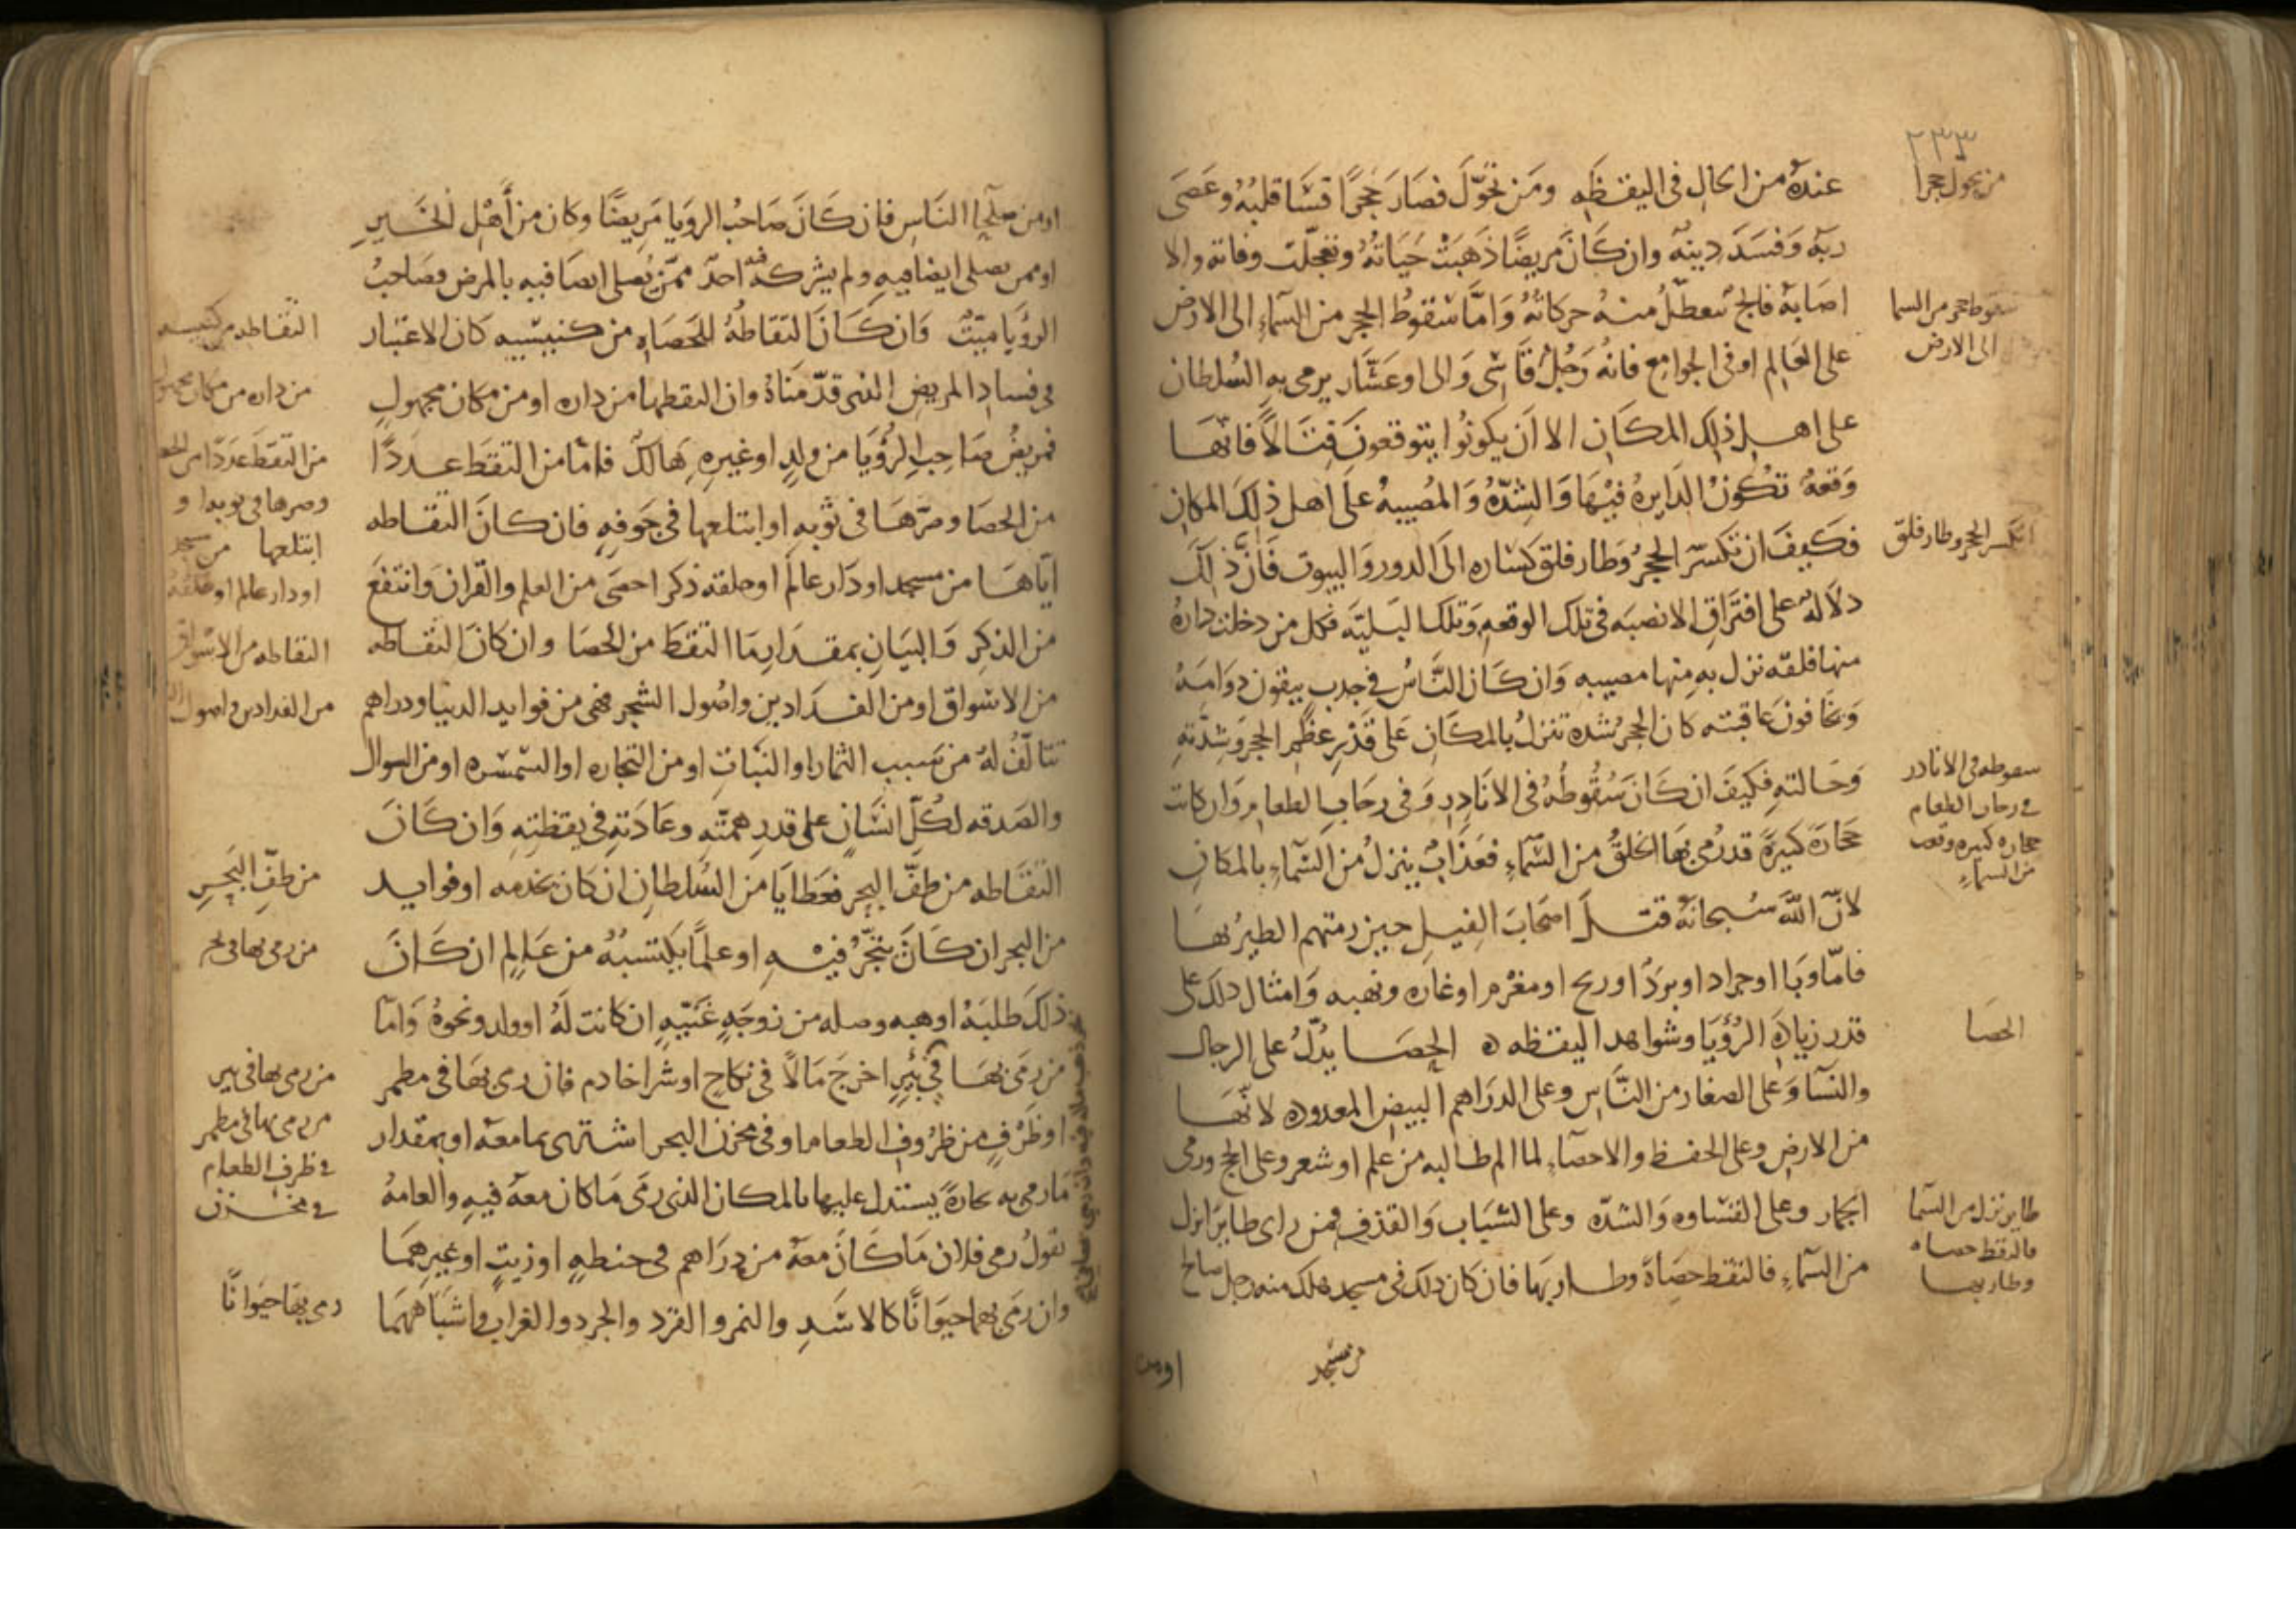 ٢٣٣
من تحول حجرا
عنده من الحال فى اليقظه ومن تحوّل فصار حجرًا قسَا قلبُهُ وعَصَى
ربّه وَفسَدَ دِينهُ وان كَانَ مريضًا ذهبَتْ حَيَاتهُ وتعجلت وفاته والا
اصَابهُ فالج تتعطّلُ منهُ حركاتهُ وَامَّا سُقوطُ الحجرِ من السّماءِ الى الارض
على العَالم او فى الجوامِع فانهُ رَجُلٌ قَاسى وَالى او عَشّار يرمى بهِ السُلطان
على اهل ذلك المكَان الا اَن يكونُوا يتوقعونَ قِتَالاً فانّهَا
وَقعةٌ تكُونُ الدَايرهُ فيْهَا وَالشِدّهُ وَالمُصيبهُ على اهل ذلك المكان
فكَيفَ ان تكسّر الحجرُ وَطار فلق كسَاره الَى الدور وَالبيوت فَانّ ذلك
دلاَلهٌ على افتَراقِ الانصبَه فى تلك الوقعهِ وَتلك البَليّه فكل من دخلت دارهُ
منها فلقه نزل بهِ منها مصيبه وَان كَان النَّاسُ فى جدبٍ يبقون دوَامهُ
وَيخافونَ عَاقبته كان الحجرُ شدة تنزلُ بالمكَانِ على قَدْرِ عظمِ الحجر وَشِدّته
وَحَالتهِ فكيفَ ان كَانَ سُقُوطُهُ فى الانَادِرِ وَفى رحَابِ الطعام وَان كانت
حجَارَةً كبيرةً قد رُمِىَ بهَا الخلقُ من السّماءِ فعَذابٌ ينزلُ من السّماءِ بالمكانِ
لانّ اللّهَ سُبحانهُ قتلَ اصحَابَ الفيلِ حين رمتهم الطيرُ بهَا
فامّا وبَا او جراد او بَردٌ او ريح او مغرم او غَارَه ونهبه وَامثال ذلك على
قدر زيادة الرُؤيَا وشواهد اليقظه ه الحِصَا يدُلُّ على الرجال
والنسَآ وَعلى الصغار من النَّاس وعلى الدرَاهم البيض المعدوده لانّهَا
من الارض وعلى الحفظ والاحصَاءِ لما الم طالبه من علم او شعر وعلى الحج ورمى
الجمار وعلى القسَاوه وَالشدّه وعلى السّبَاب وَالقذف فمن راى طايرًا نزل
من السّماءِ فالتقط حصَاةً وطار بهَا فان كان ذلك فى مسجد هلك منه رجل صالح
من مسجد
او من
سقوط حجر من السما
الى الارض
انكسر الحجر وطار فلق
سقوطه فى الانادر
فى رحاب الطعام
حجاره كبيره وقعت
من السماءِ
الحصَا
طاير نزل من السّما
فالتقط حصاه
وطار بها
او من صلَحَاء النَاس فان كَانَ صَاحبُ الرويا مَريضًا وكان من أهْل الخَيرِ
او ممن يصلى ايضا فيهِ ولم يشركه فيه احدٌ ممّن يُصلى ايضا فيه بالمرض فصَاحبُ
الرؤيَا ميّتٌ وَان كَانَ التقَاطُهُ للحَصَاهِ من كنيسَه كان الاعتبَار
فى فسادِ المريض الذى قدّمنَاهُ وان التقطها من داره او من مكان مجهولٍ
فمريضُ صَاحب الرُؤيَا من ولدٍ او غيرهِ هَالكٌ فامّا من التقَط عددًا
من الحصَا وصرّهَا فى ثوبه او ابتلعها فى جَوفهِ فان كان التقاطه
ايّاهَا من مسجد او دَار عالم او حلقه ذكر احصَى من العلم والقران وَانتفعَ
من الذكرِ وَالبيَانِ بمقدَارِ مَا التقطَ من الحصَا وان كانَ التقاطه
من الاسْواق او من الفدَادين واصُول الشجر فهى من فوايد الدنيا ودراهم
تتالّفُ لهُ من سَبب الثمار او النبَاتِ او من التجاره او السّمسَره او من السوال
والصَدقه لكُلّ انسَانٍ على قدرِ همتّه وعَادَتهِ فى يقظتِهِ وَان كَانَ
التقَاطه من طفّ البحرِ فعَطايَا من السُلطانِ ان كان يخدمه او فوايد
من البحر ان كَانَ يتّجّرُ فيْهِ او علمًا يكتسبُهُ من عَالمٍ ان كَانَ
ذلكَ طلبَهُ او هبه وصله من زوجَهٍ غَنيّهٍ ان كانت لَهُ او ولد ونحوهُ وَامّا
من رمَى بهَا فى بئْرٍ اخرجَ مَالاً فى نكاحٍ او شرا خادم فان رمى بهَا فى مطمر
او ظَرْفٍ من ظرُوفِ الطعام او فى مخزن البحر اشتَرى بما معَه او بمقدار
مَا رمى به تجارةً يستدل عليها بالمكان الذى رمَى مَا كان معهُ فيهِ والعامهُ
تقولُ رمى فلان مَا كَانَ معهُ من دِرَاهم فى حنطهٍ او زيتٍ او غيرهمَا
وان رمَى بهما حيوَانًا كالاسَدِ والنمر والقرد والجرد والغراب واشبَاههمَا
التقاطه من كنيسه
من داره من مكان مجهول
من التقط عددًا من الحصا
وصرها فى ثوبه او
ابتلعها من مسجد
او دار عالم او حلقه
التقاطه من الاسواق
من الفدادين واصول
من طفِّ البَحرِ
من رمى بها فى بئر
من رمى بها فى مطمر
فى ظرف الطعام
فى مخزن
رمى بهَا حيَوانًا